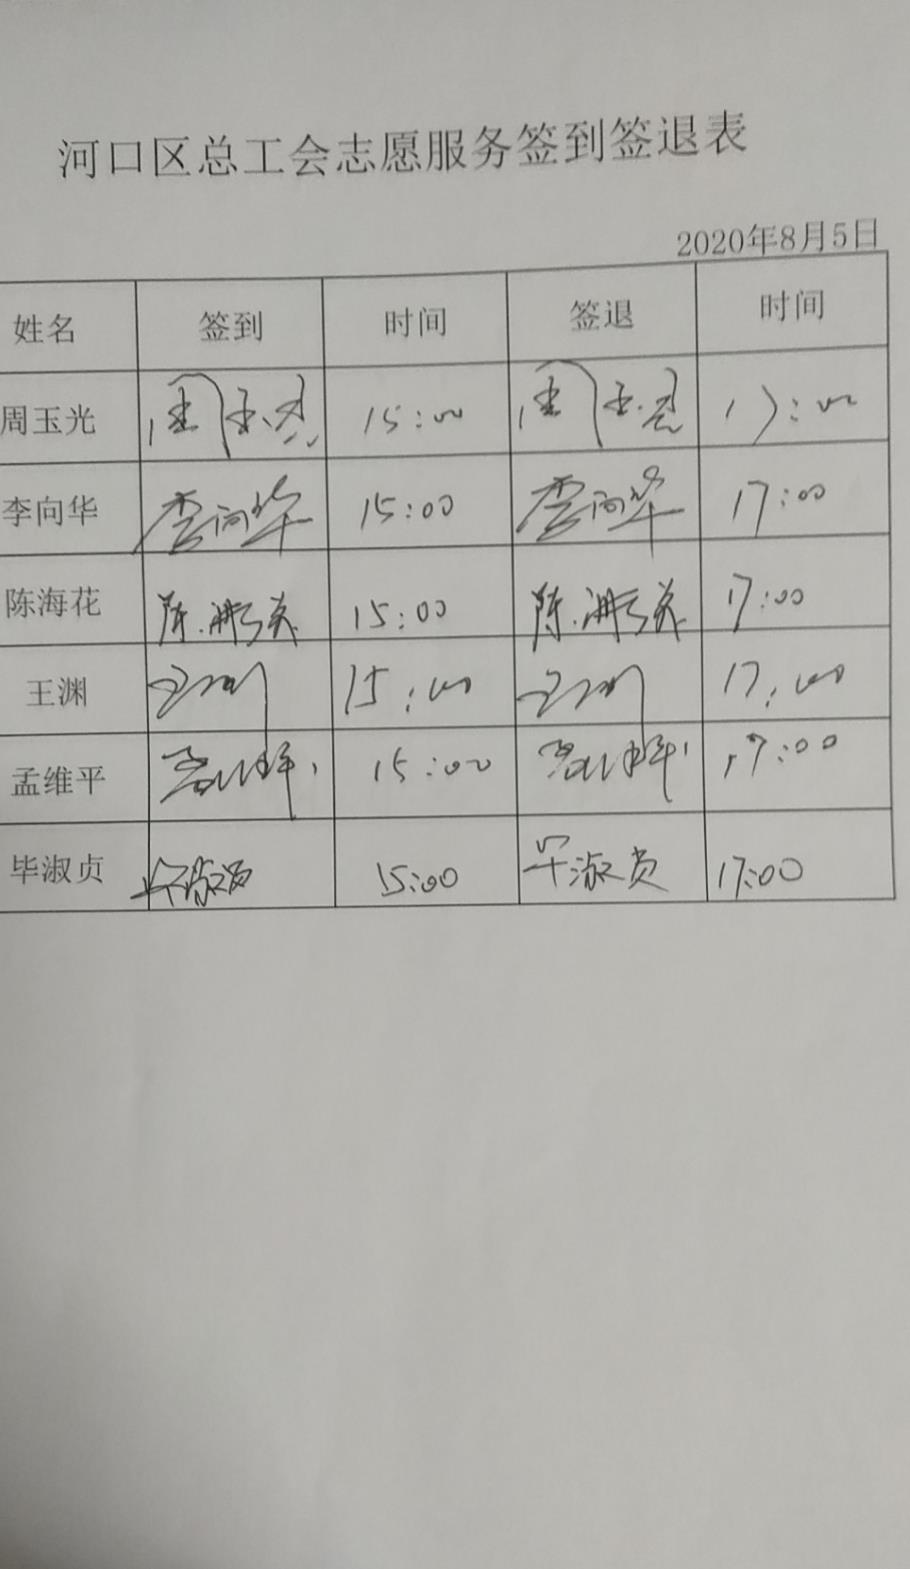 河口区总工会志愿服务签到签退表
2020年8月5日
姓名 签到 时间 签退 时间
周玉光 周玉光 15:00 周玉光 17:00
李向华 李向华 15:00 李向华 17:00
陈海花 陈海花 15:00 陈海花 17:00
王渊 王渊 15:00 王渊 17:00
孟维平 孟维平 15:00 孟维平 17:00
毕淑贞 毕淑贞 15:00 毕淑贞 17:00